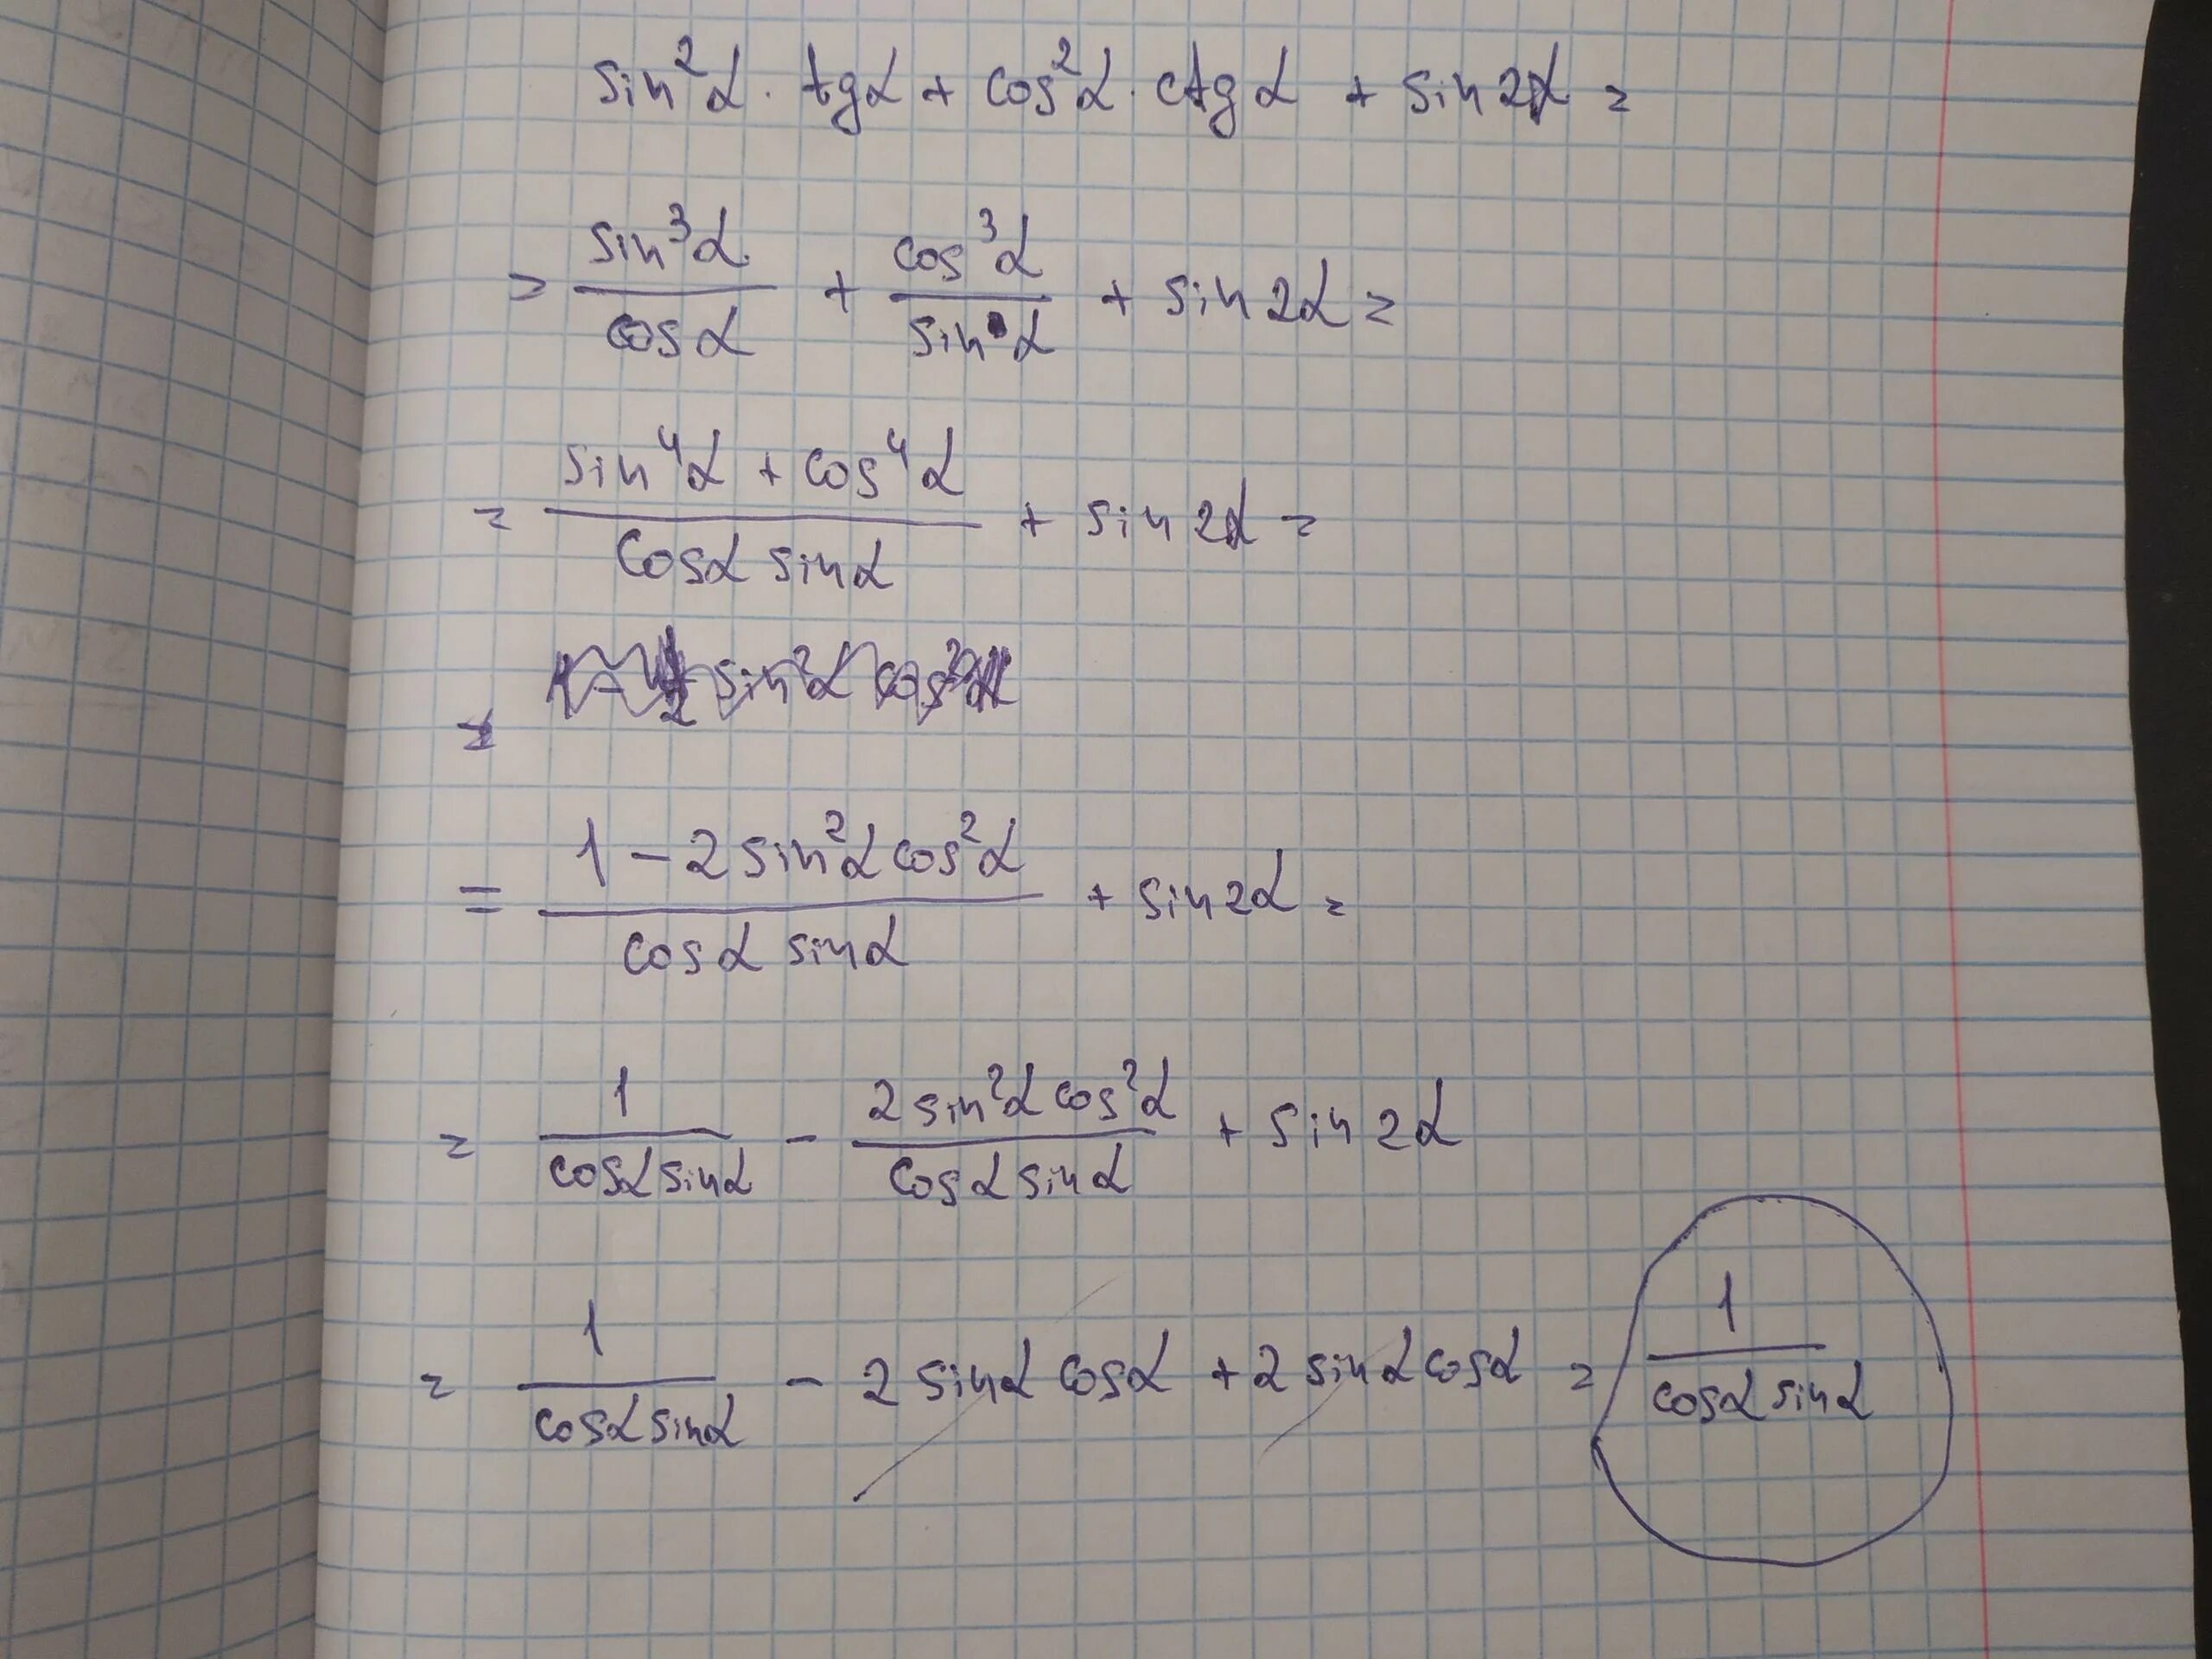 sin²α · tgα + cos²α · ctgα + sin2α =
= sin³α/cosα + cos³α/sinα + sin2α =
= (sin⁴α + cos⁴α)/(cosα sinα) + sin2α =
= (1 - 2sin²α cos²α)/(cosα sinα) + sin2α =
= 1/(cosα sinα) - (2sin²α cos²α)/(cosα sinα) + sin2α
= 1/(cosα sinα) - 2sinα cosα + 2sinα cosα = 1/(cosα sinα)